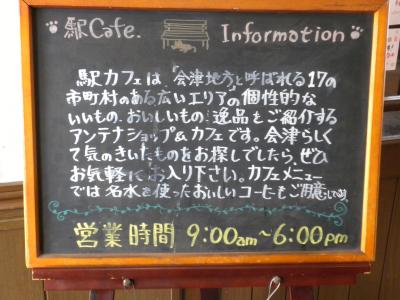 駅Cafe. Information
駅カフェは、"会津地方と呼ばれる17の
市町村のある広いエリア"の個性的な
いいもの、おいしいもの、逸品をご紹介する
アンテナショップ&カフェです。会津らしく
て気のきいたものをお探しでしたら、ぜひ
お気軽にお入り下さい。カフェメニュー
では名水を使ったおいしいコーヒーもご用意
営業時間 9:00am~6:00pm